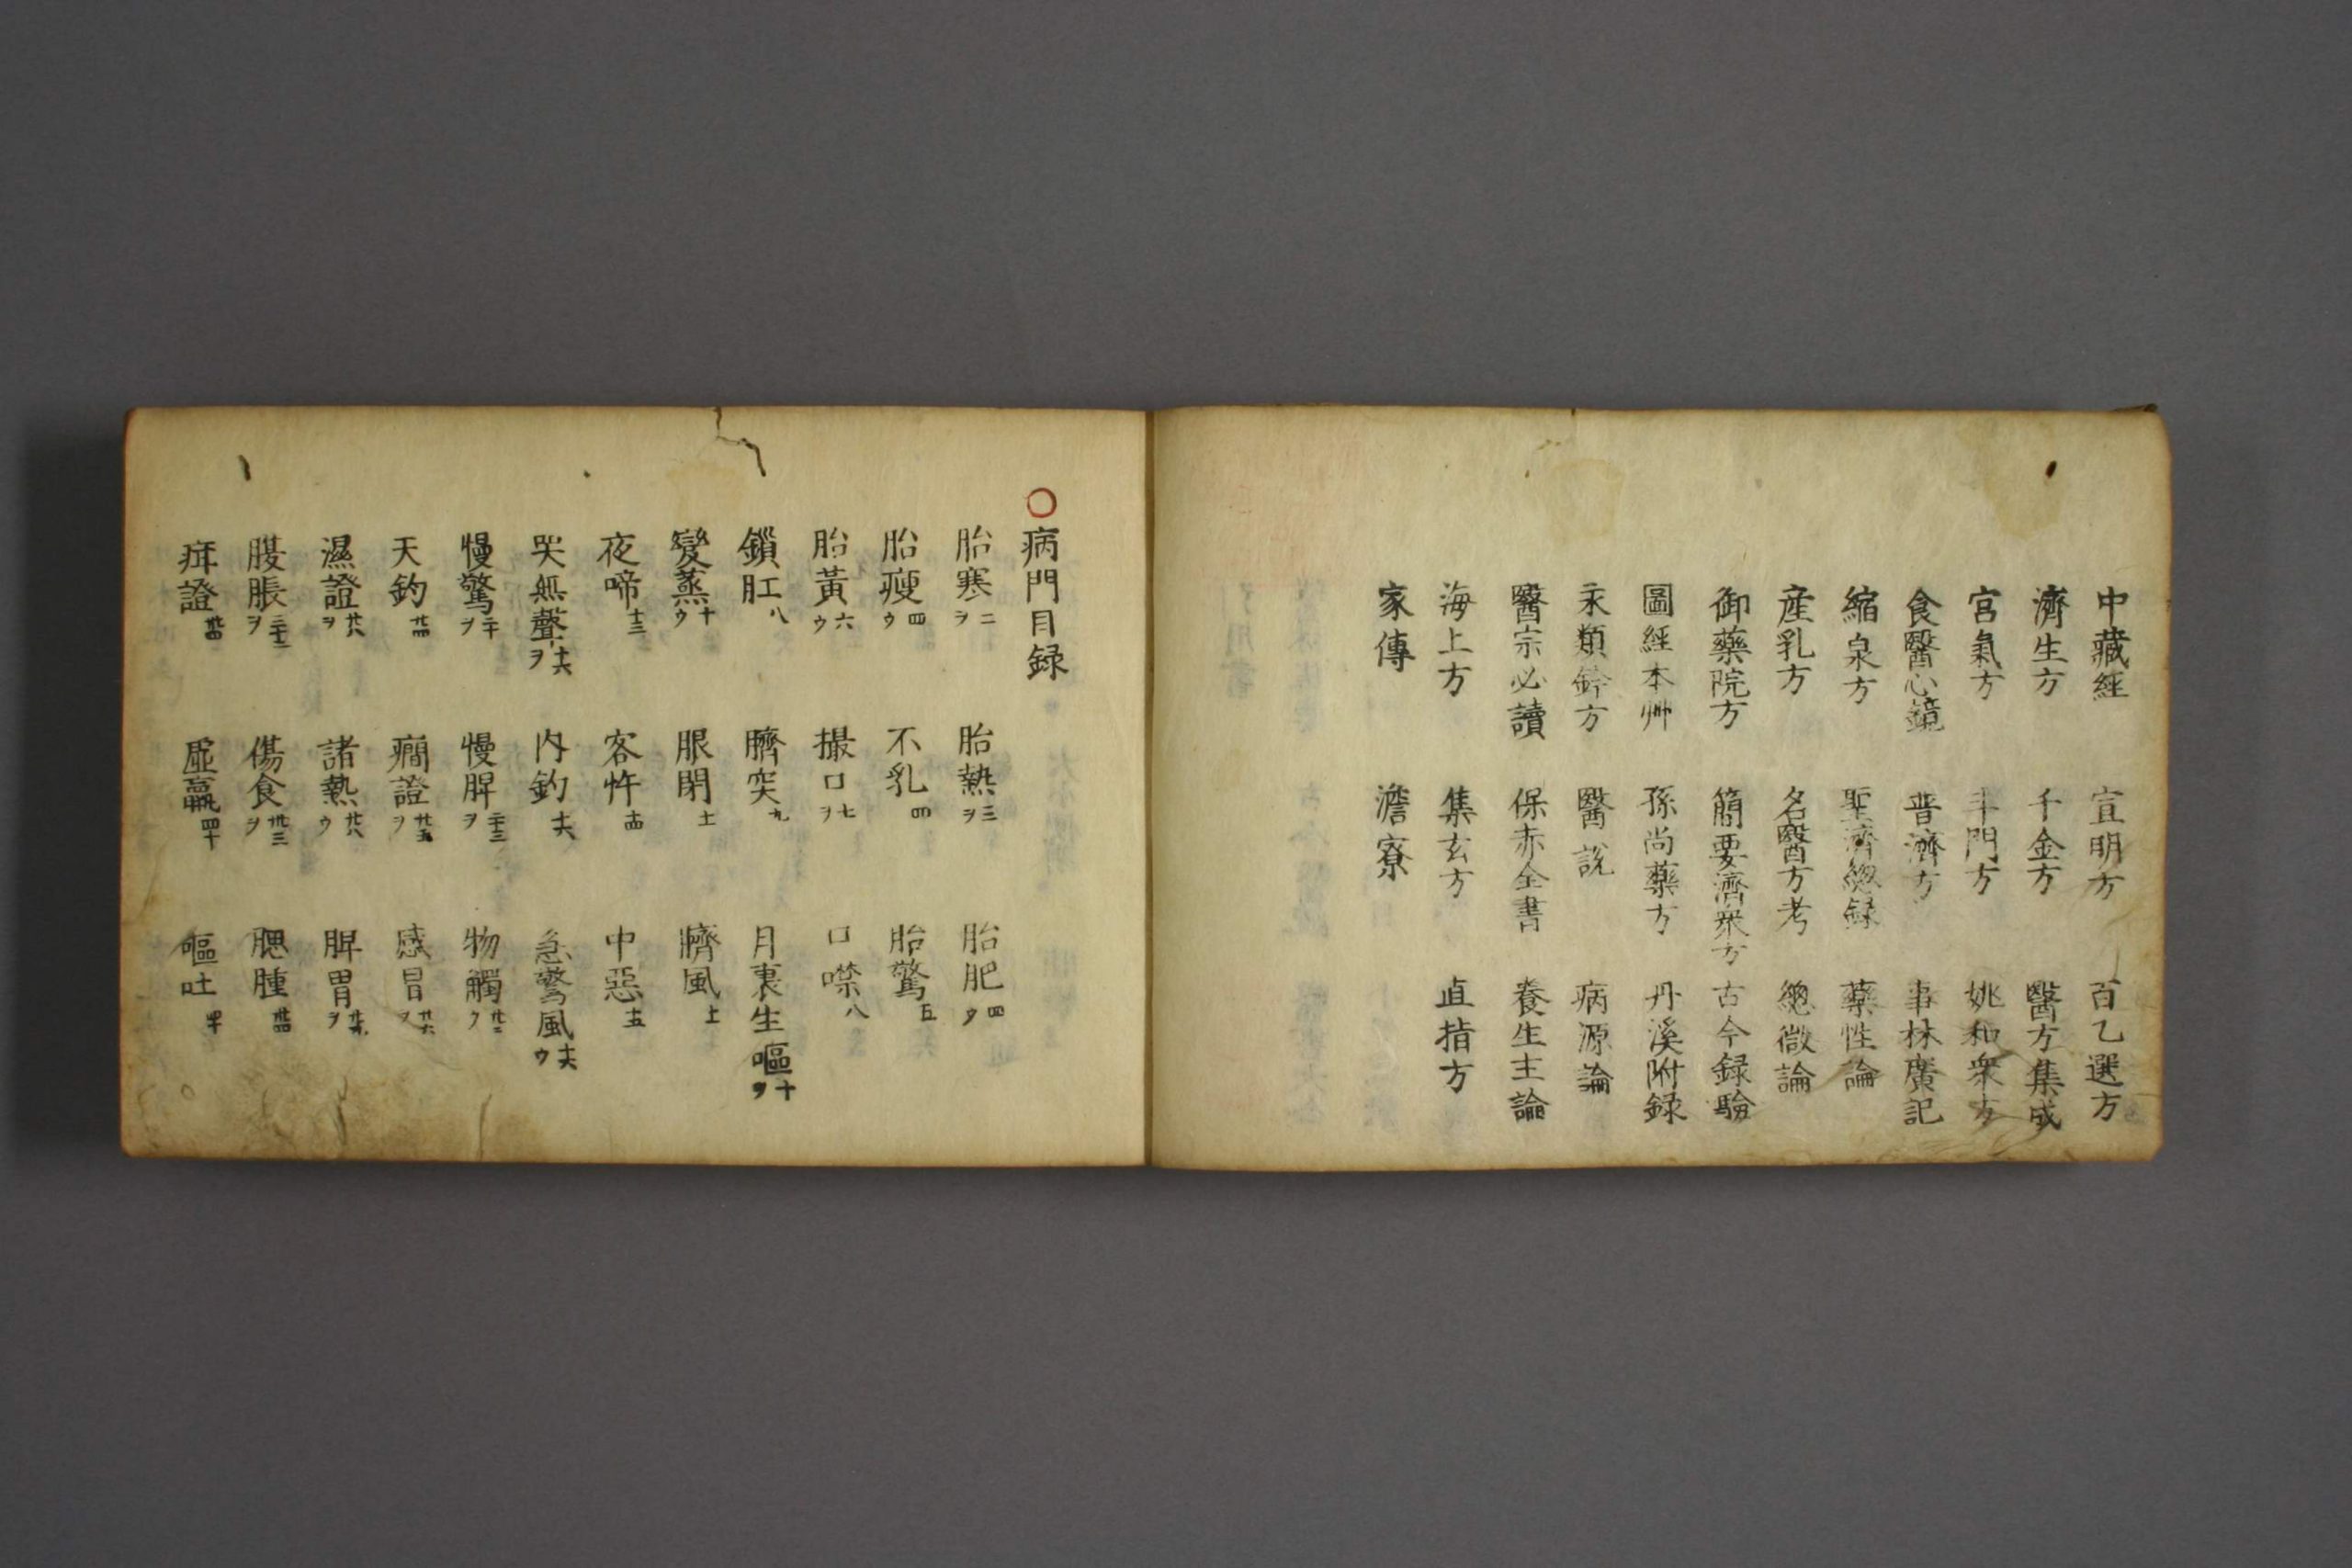 中藏經 宣明方 百乙選方
濟生方 千金方 醫方集成
宮氣方 斗門方 姚和衆方
食醫心鏡 普濟方 事林廣記
縮泉方 聖濟總録 藥性論
産乳方 名醫方考 總微論
御藥院方 簡要濟衆方 古今録驗
圖經本艸 孫尚藥方 丹溪附録
永類鈐方 醫説 病源論
醫宗必讀 保赤全書 養生主論
海上方 集玄方 直指方
家傳 澹寮
○病門目録
胎寒二ヲ 胎熱三ヲ 胎肥四ヲ
胎瘦四ウ 不乳四 胎驚五
胎黃六ウ 撮口七ヲ 口噤八
鎖肛八 臍突九 月裏生嘔十ヲ
變蒸十ウ 眼閉十一 臍風十一
夜啼十三 客忤十四 中惡十五
哭無聲十六ヲ 内釣十六 急驚風十六ウ
慢驚二十ヲ 慢脾二十三ヲ 物觸廿三ウ
天釣廿四 癇證廿五ヲ 感冒廿六ヲ
濕證廿八ヲ 諸熱廿八ウ 脾胃廿九ヲ
腹脹三十二ヲ 傷食卅三ヲ 腮腫卅四
疳證卅四 虛羸四十 嘔吐四十